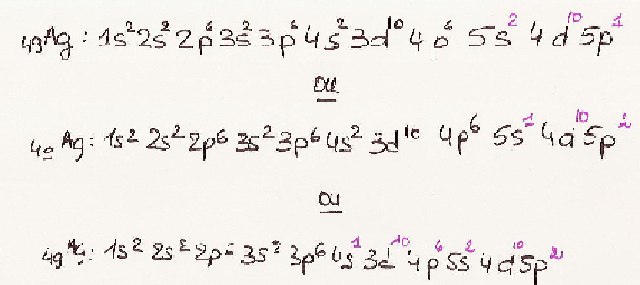 49Ag: 1s² 2s² 2p⁶ 3s² 3p⁶ 4s² 3d¹⁰ 4p⁶ 5s² 4d¹⁰ 5p¹
ou
49Ag: 1s² 2s² 2p⁶ 3s² 3p⁶ 4s² 3d¹⁰ 4p⁶ 5s¹ 4d¹⁰ 5p²
ou
49Ag: 1s² 2s² 2p⁶ 3s² 3p⁶ 4s¹ 3d¹⁰ 4p⁶ 5s² 4d¹⁰ 5p²